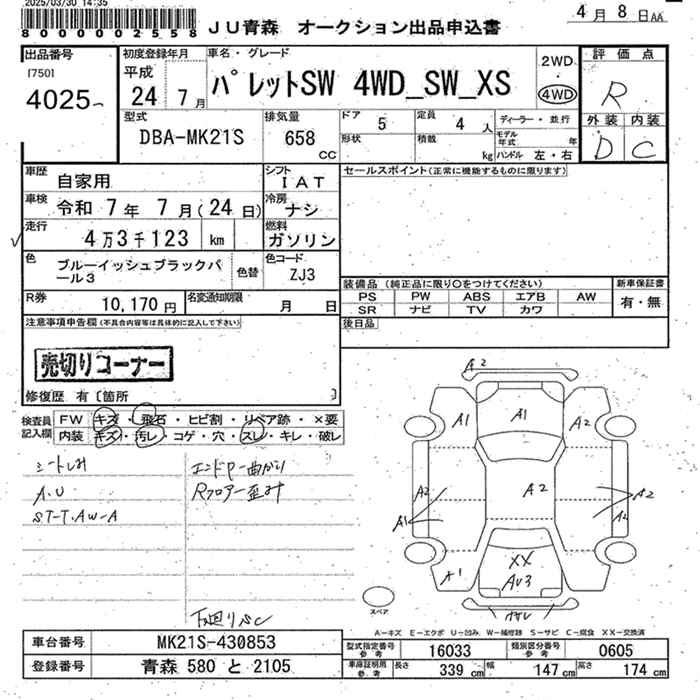 2025/03/30 14:35
800000002558
JU青森 オークション出品申込書
4月8日AA
出品番号
[750]
4025
初度登録年月
平成
24年7月
車名・グレード
パレットSW 4WD_SW_XS
2WD
4WD
評価点
R
外装 内装
D C
型式
DBA-MK21S
排気量
658
CC
ドア
5
形状
定員
4人
積載
kg
ディーラー・並行
モデル年式 年
ハンドル 左・右
車歴
自家用
シフト
IAT
車検
令和 7年 7月(24日)
冷房
ナシ
走行
4万3千123 km
燃料
ガソリン
色
ブルーイッシュブラックパール3
色替
色コード
ZJ3
R券
10,170円
名変通知期限
月 日
セールスポイント(正常に機能するものに限ります)
装備品(純正品に限り○をつけてください)
PS PW ABS エアB AW
SR ナビ TV カワ
新車保証書
有・無
後日品
注意事項申告欄(不具合内容等は具体的に記入して下さい)
売切りコーナー
修復歴 有〔箇所 〕
検査員記入欄
FW キズ・飛石・ヒビ割・リペア跡・×要
内装 キズ・汚レ・コゲ・穴・スレ・キレ・破レ
シートしみ
A.U
ST-T.AW-A
エンドP曲がり
Rフロアー歪み
下廻りSC
A2
A1
A1
A2
A2
A2
A1
A2
A2
A1
XX
AU3
スペア
A-キズ E-エクボ U-凹み W-補修跡 S-サビ C-腐食 XX-交換済
車台番号
MK21S-430853
登録番号
青森 580 と 2105
型式指定番号
参考
16033
類別区分番号
参考
0605
車庫証明用
参考
長さ
339 cm
幅
147 cm
高さ
174 cm